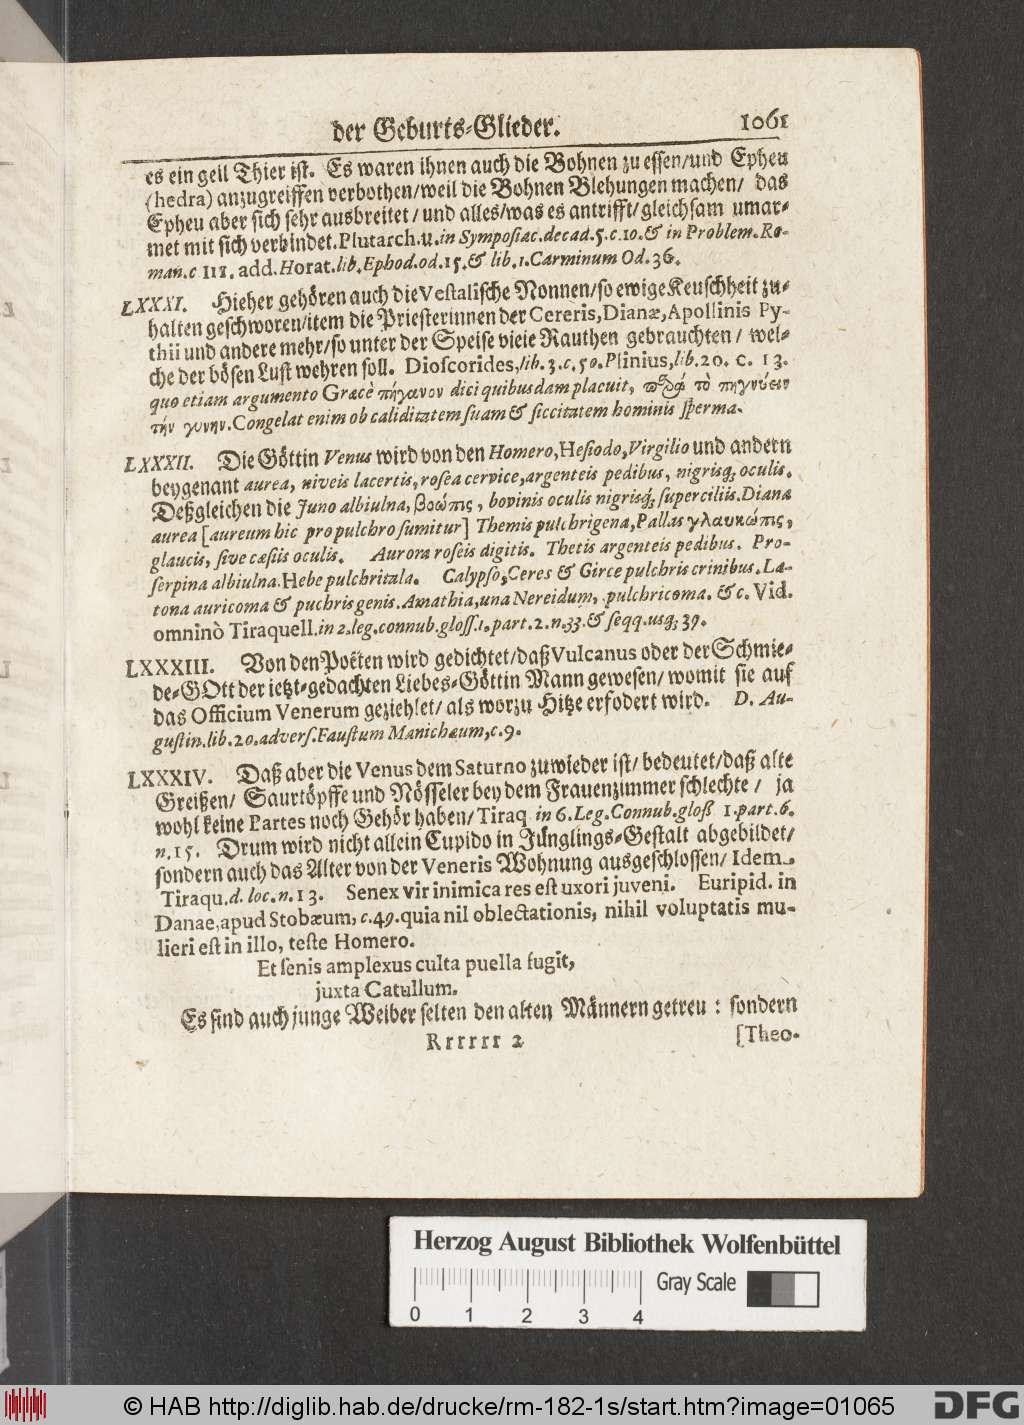 der Geburts-Glieder. 1061
es ein geil Thier ist. Es waren ihnen auch die Bohnen zu essen/und Epheu
(hedra) anzugreiffen verbothen/weil die Bohnen Blehungen machen/ das
Epheu aber sich sehr ausbreitet/ und alles/was es antrifft/gleichsam umar-
met mit sich verbindet. Plutarch. u. in Symposiac. decad. 5. c. 10. & in Problem. Ro-
man. c III. add. Horat. lib. Ephod. od. 15. & lib. 1. Carminum Od. 36.
LXXXI. Hieher gehören auch die Vestalische Nonnen/so ewige Keuschheit zu-
halten geschworen/item die Priesterinnen der Cereris, Dianæ, Apollinis Py-
thii und andere mehr/so unter der Speise vieie Rauthen gebrauchten/ wel-
che der bösen Lust wehren soll. Dioscorides, lib. 3. c. 50. Plinius, lib. 20. c. 13.
quo etiam argumento Græcè πήγανον dici quibusdam placuit, τὸ πηγνύειν
τὴν γυνην. Congelat enim ob caliditatem suam & siccitatem hominis sperma.
LXXXII. Die Göttin Venus wird von den Homero, Hesiodo, Virgilio und andern
beygenant aurea, niveis lacertis, rosea cervice, argenteis pedibus, nigrisq; oculis.
Deßgleichen die Juno albiulna, βοώπις, bovinis oculis nigrisq; superciliis. Diana
aurea [aureum hic pro pulchro sumitur] Themis pulchrigena, Pallas γλαυκώπις,
glaucis, sive cæsiis oculis. Aurora roseis digitis. Thetis argenteis pedibus. Pro-
serpina albiulna. Hebe pulchritala. Calypso, Ceres & Circe pulchris crinibus. La-
tona auricoma & puchris genis. Amathia, una Nereidum, pulchricoma. & c. Vid.
omninò Tiraquell. in 2. leg. connub. gloss. 1. part. 2. n. 33. & seqq. usq; 39.
LXXXIII. Von den Poëten wird gedichtet/daß Vulcanus oder der Schmie-
de-GOtt der ietzt-gedachten Liebes-Göttin Mann gewesen/ womit sie auf
das Officium Venerum geziehlet/ als worzu Hitze erfodert wird. D. Au-
gustin. lib. 20. advers. Faustum Manichæum, c. 9.
LXXXIV. Daß aber die Venus dem Saturno zuwieder ist/ bedeutet/daß alte
Greißen/ Saurtöpffe und Nösseler bey dem Frauenzimmer schlechte/ ja
wohl keine Partes noch Gehör haben/ Tiraq in 6. Leg. Connub. gloß 1. part. 6.
n. 15. Drum wird nicht allein Cupido in Jünglings-Gestalt abgebildet/
sondern auch das Alter von der Veneris Wohnung ausgeschlossen/ Idem
Tiraqu. d. loc. n. 13. Senex vir inimica res est uxori juveni. Euripid. in
Danae, apud Stobæum, c. 49. quia nil oblectationis, nihil voluptatis mu-
lieri est in illo, teste Homero.
Et senis amplexus culta puella fugit,
juxta Catullum.
Es sind auch junge Weiber selten den alten Männern getreu: sondern
Rrrrrr 2 [Theo-
Herzog August Bibliothek Wolfenbüttel
Gray Scale
0 1 2 3 4
© HAB http://diglib.hab.de/drucke/rm-182-1s/start.htm?image=01065
DFG